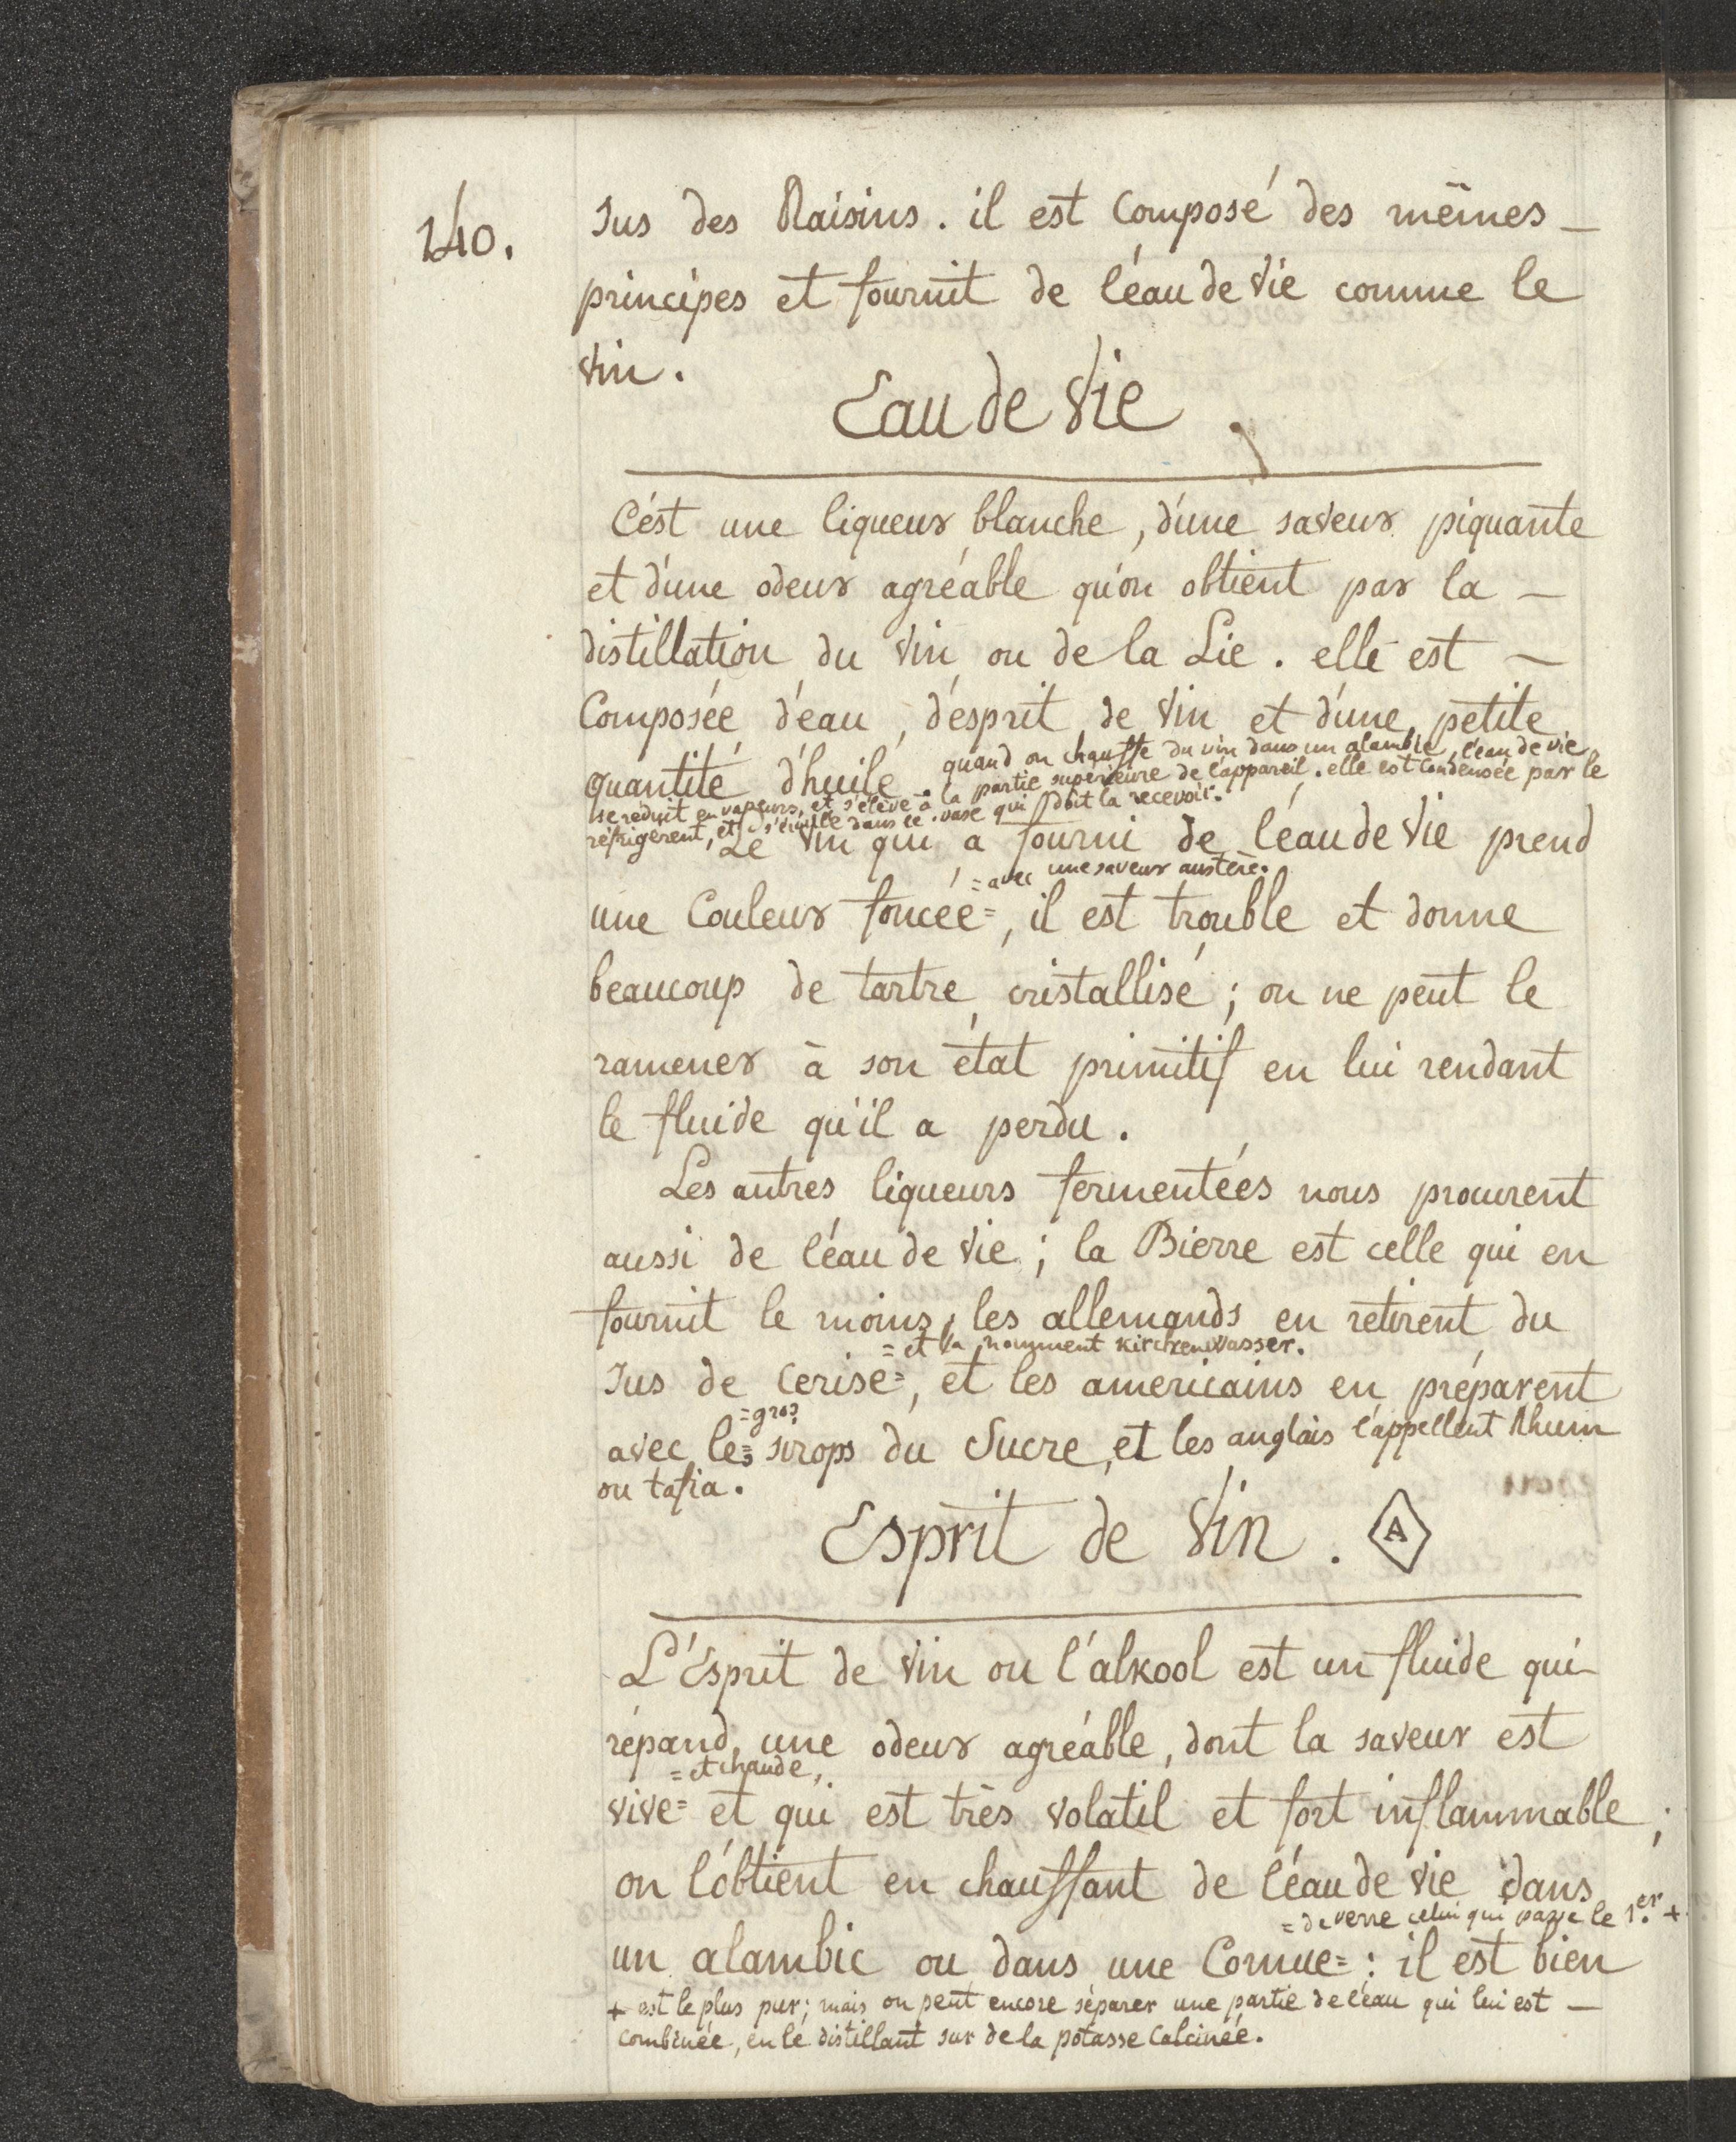 140.
Jus des Raisins. il est Composé des mêmes
principes et fournit de l'eau de vie comme le
vin.
Eau de vie.
C'est une liqueur blanche, d'une saveur piquante
et d'une odeur agréable qu'on obtient par la
distillation du vin ou de la Lie. elle est
Composée d'eau, d'esprit de vin et d'une petite
quantité d'huile. quand on chauffe du vin dans un alambic, l'eau de vie
se réduit en vapeurs, et s'élève à la partie supérieure de l'appareil. elle est condensée par le
réfrigérent, et s'écoule dans le vase qui doit la recevoir.
Le vin qui a fourni de l'eau de vie prend
= avec une saveur austère.
une Couleur foncée=, il est trouble et donne
beaucoup de tartre cristallisé; on ne peut le
ramener à son état primitif en lui rendant
le fluide qu'il a perdu.
Les autres liqueurs fermentées nous procurent
aussi de l'eau de vie; la Bierre est celle qui en
fournit le moins; les allemands en retirent du
= et la nomment kirchenwasser.
Jus de Cerise=, et les américains en préparent
= gros
avec les= sirops du Sucre, et les anglais l'appellent Rhum
ou tafia.
Esprit de Vin. A
L'Esprit de vin ou l'alkool est un fluide qui
répand une odeur agréable, dont la saveur est
= et chaude,
vive= et qui est très volatil et fort inflammable;
on l'obtient en chauffant de l'eau de vie dans
= de verre celui qui passe le 1er. +
un alambic ou dans une Cornue=: il est bien
+ est le plus pur; mais on peut encore séparer une partie de l'eau qui lui est
combinée, en le distillant sur de la potasse Calcinée.